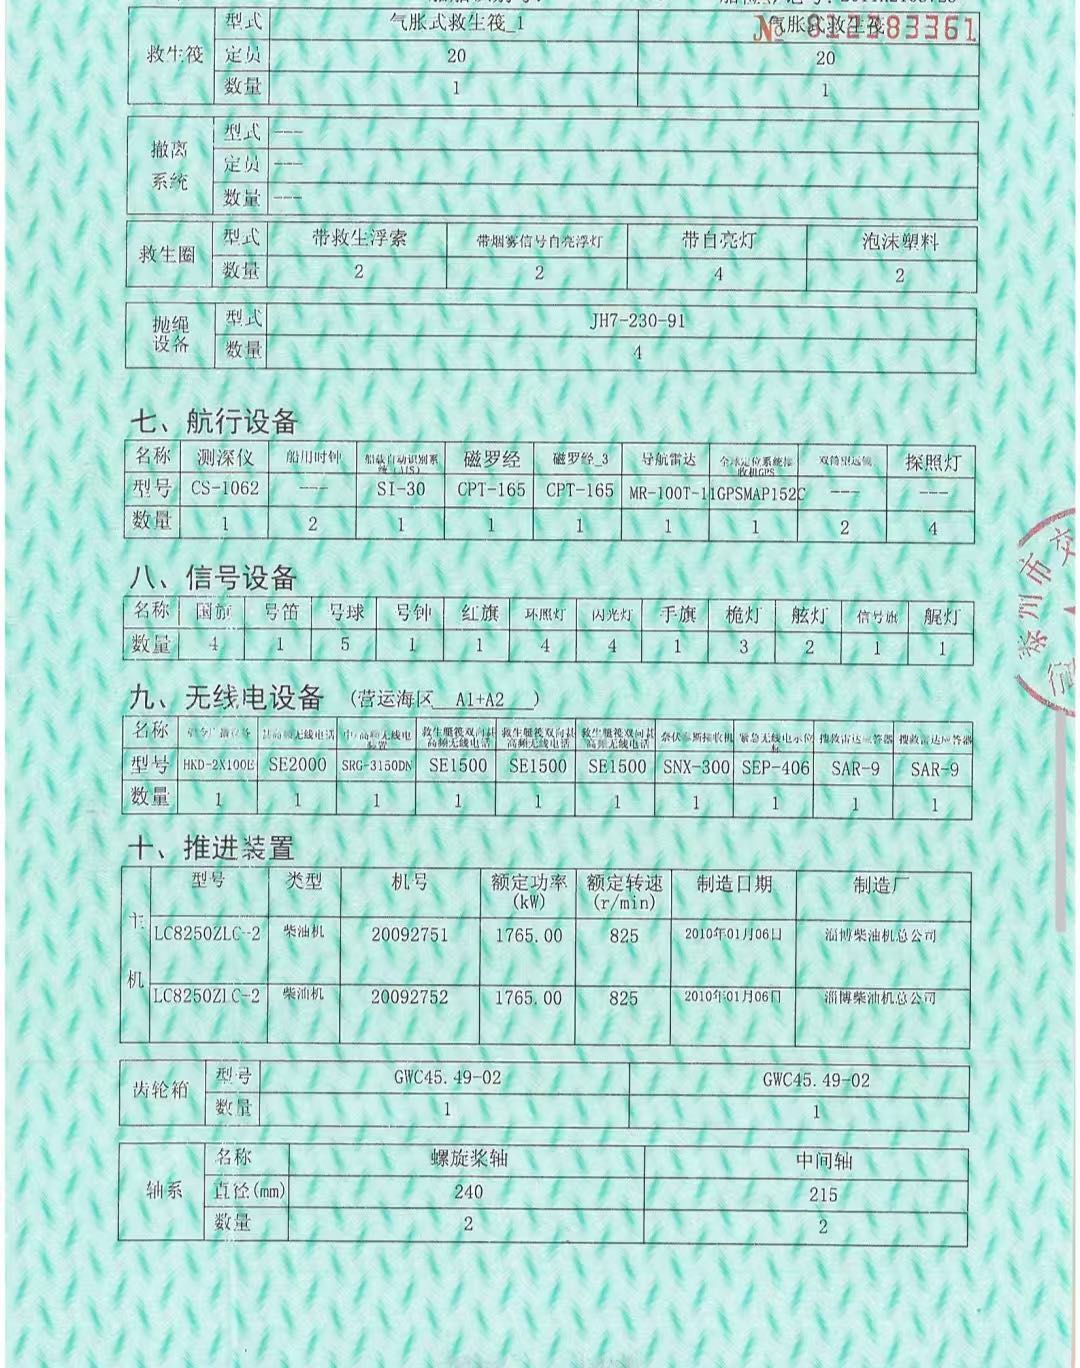 救生筏 型式 气胀式救生筏_1 气胀式救生筏
定员 20 20
数量 1 1
撤离系统 型式 ---
定员 ---
数量 ---
救生圈 型式 带救生浮索 带烟雾信号自亮浮灯 带自亮灯 泡沫塑料
数量 2 2 4 2
抛绳设备 型式 JH7-230-91
数量 4
七、航行设备
名称 测深仪 船用时钟 船载自动识别系统(AIS) 磁罗经 磁罗经_3 导航雷达 全球定位系统接收机GPS 双筒望远镜 探照灯
型号 CS-1062 --- SI-30 CPT-165 CPT-165 MR-100T-11 GPSMAP152C --- ---
数量 1 2 1 1 1 1 1 2 4
八、信号设备
名称 国旗 号笛 号球 号钟 红旗 环照灯 闪光灯 手旗 桅灯 舷灯 信号旗 艉灯
数量 4 1 5 1 1 4 4 1 3 2 1 1
九、无线电设备 (营运海区 A1+A2 )
名称 甚高频无线电话 中/高频无线电装置 救生艇筏双向甚高频无线电话 救生艇筏双向甚高频无线电话 救生艇筏双向甚高频无线电话 奈伏泰斯接收机 紧急无线电示位标 搜救雷达应答器 搜救雷达应答器
型号 HKD-2X100E SE2000 SRG-3150DN SE1500 SE1500 SE1500 SNX-300 SEP-406 SAR-9 SAR-9
数量 1 1 1 1 1 1 1 1 1 1
十、推进装置
主机 型号 类型 机号 额定功率(kW) 额定转速(r/min) 制造日期 制造厂
LC8250ZLC-2 柴油机 20092751 1765.00 825 2010年01月06日 淄博柴油机总公司
LC8250ZLC-2 柴油机 20092752 1765.00 825 2010年01月06日 淄博柴油机总公司
齿轮箱 型号 GWC45.49-02 GWC45.49-02
数量 1 1
轴系 名称 螺旋桨轴 中间轴
直径(mm) 240 215
数量 2 2